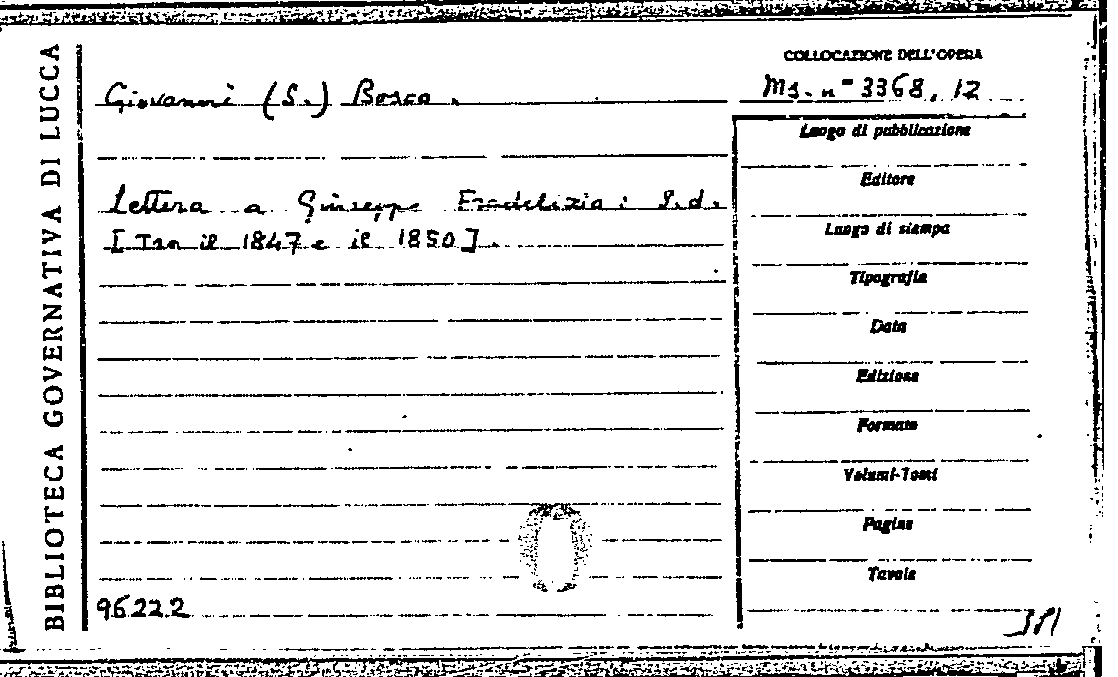 BIBLIOTECA GOVERNATIVA DI LUCCA
Giovanni (S.) Bosco.
Lettera a Giuseppe Fradelizia: S.d.
[Tra il 1847 e il 1850].
96222
COLLOCAZIONE DELL'OPERA
Ms. n° 3368, 12
Luogo di pubblicazione
Editore
Luogo di stampa
Tipografia
Data
Edizione
Formato
Volumi-Tomi
Pagine
Tavole
381